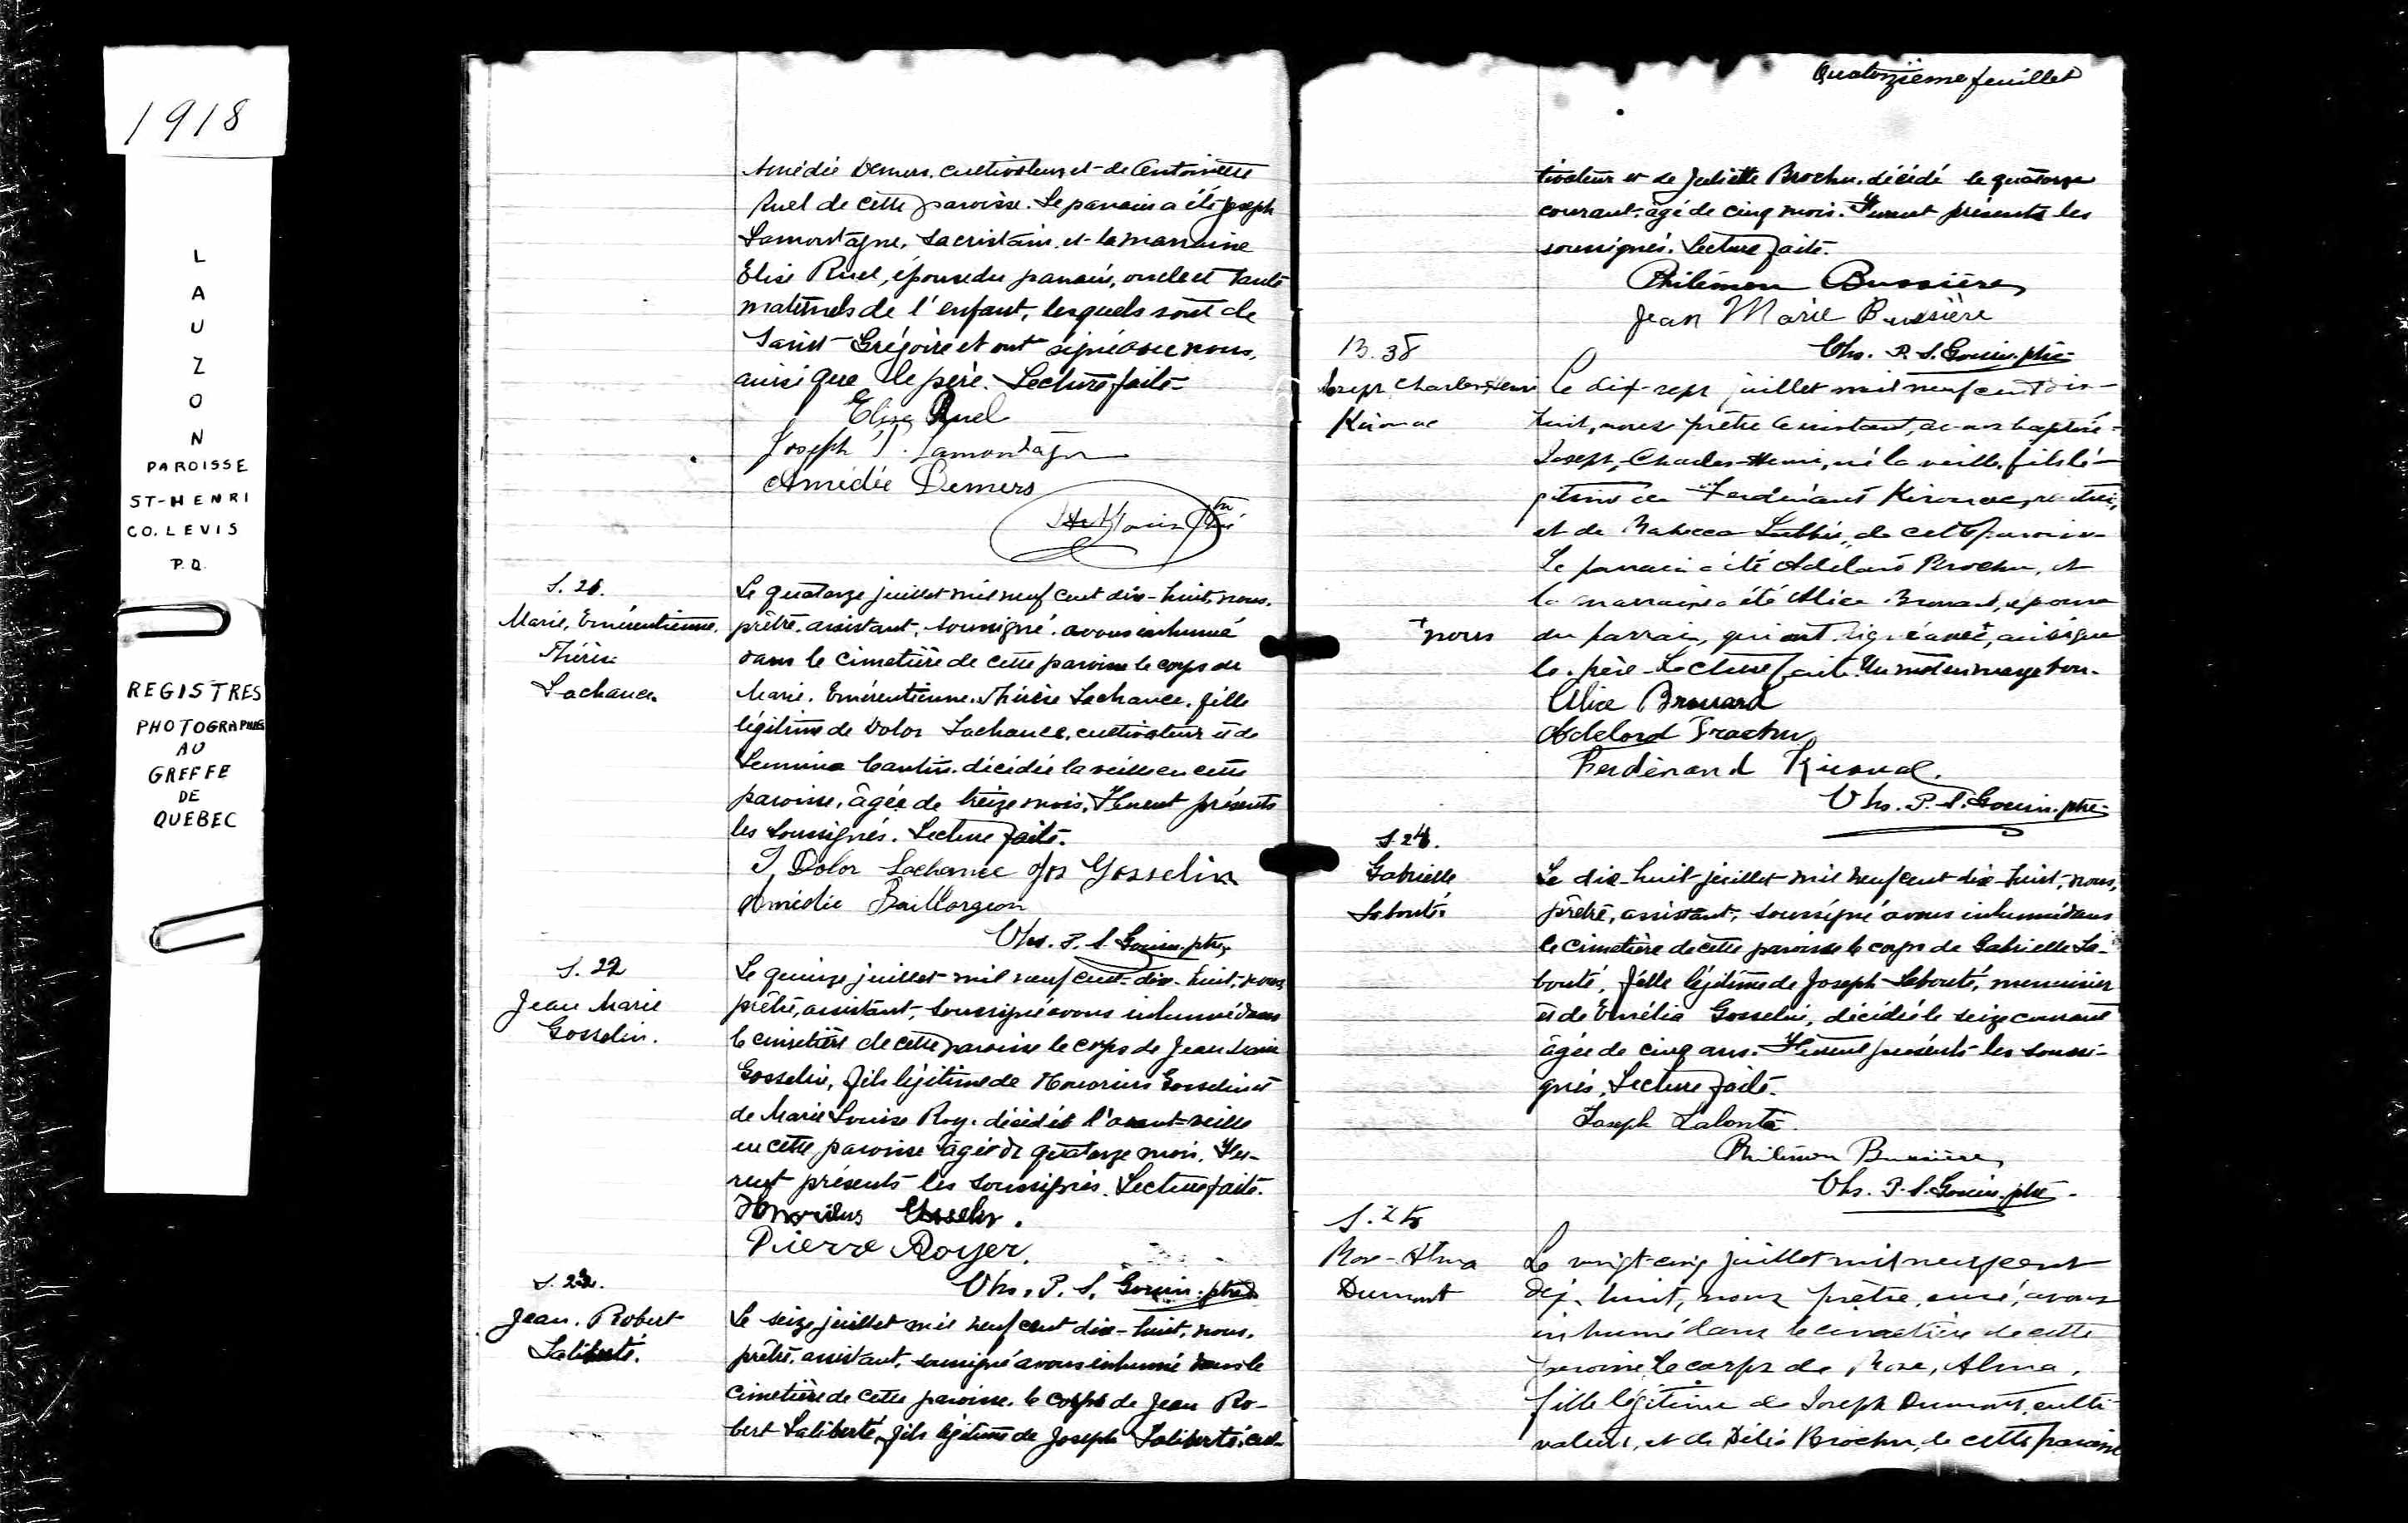 1918
L
A
U
Z
O
N
PAROISSE
ST-HENRI
CO. LEVIS
P.Q.
REGISTRES
PHOTOGRAPHIES
AU
GREFFE
DE
QUEBEC
Amédée Demers, cultivateur et de Antoinette
Ruel de cette paroisse. Le parrain a été Joseph
Lamontagne, sacristain, et la marraine
Elise Ruel, épouse du parrain, oncle et tante
maternels de l'enfant, lesquels sont de
Saint-Grégoire et ont signé avec nous,
ainsi que le père. Lecture faite.
Elise Ruel
Joseph T. Lamontagne
Amédée Demers
S. 21.
Marie, Emérentienne,
Thérèse
Lachance
Le quatorze juillet mil neuf cent dix-huit, nous,
prêtre, assistant, soussigné, avons inhumé
dans le cimetière de cette paroisse le corps de
Marie, Emérentienne, Thérèse Lachance, fille
légitime de Dolor Lachance, cultivateur et de
Cantin, décédée la veille en cette
paroisse, âgée de treize mois. Furent présents
les soussignés. Lecture faite.
J. Dolor Lachance Jos Gosselin
Amédée Baillargeon
Chs. P. S. Gouin, ptre
S. 22
Jean Marie
Gosselin.
Le quinze juillet mil neuf cent dix-huit, nous,
prêtre, assistant, soussigné avons inhumé dans
le cimetière de cette paroisse le corps de Jean Marie
Gosselin, fils légitime de Honorius Gosselin et
de Marie Louise Roy, décédé l'avant-veille
en cette paroisse âgé de quatorze mois. Fu-
rent présents les soussignés. Lecture faite.
Honorius Gosselin.
Pierre Royer.
Chs. P. S. Gouin, ptre
S. 23.
Jean, Robert
Laliberté.
Le seize juillet mil neuf cent dix-huit, nous,
prêtre, assistant, soussigné avons inhumé dans le
cimetière de cette paroisse, le corps de Jean Ro-
bert Laliberté, fils légitime de Joseph Laliberté, cul-
Quatorzième feuillet
tivateur et de Juliette Brochu, décédé le quatorze
courant, âgé de cinq mois. Furent présents les
soussignés. Lecture faite.
Philémon Bussières
Jean Marie Bussière
Chs. P. S. Gouin, ptre
B. 38
Joseph Charles-Henri
Kirouac
Le dix-sept juillet mil neuf cent dix-
huit, nous prêtre assistant, avons baptisé
Joseph, Charles-Henri, né la veille, fils lé-
gitime de Ferdinand Kirouac,
et de de cette paroisse
Le parrain a été Adelard Brochu, et
la marraine a été Alice Brouard, épouse
+nous
du parrain, qui ont signé avec+, ainsi que
le père. Lecture faite. Un mot en marge bon.
Alice Brouard
Adelard Brochu
Ferdinand Kirouac.
Chs. P. S. Gouin, ptre
S. 24.
Gabrielle
Labonté
Le dix-huit juillet mil neuf cent dix-huit, nous,
prêtre, assistant, soussigné avons inhumé dans
le cimetière de cette paroisse le corps de Gabrielle La-
bonté, fille légitime de Joseph Labonté, menuisier
et de Emélia Gosselin, décédée le seize courant
âgée de cinq ans. Furent présents les soussi-
gnés. Lecture faite.
Joseph Labonté.
Philémon Bussières
Chs. P. S. Gouin, ptre
S. 25
Rose-Alma
Dumont
Le vingt-cinq juillet mil neuf cent
dix-huit, nous prêtre, curé, avons
inhumé dans le cimetière de cette
paroisse le corps de Rose, Alma,
fille légitime de Joseph Dumont, culti-
vateur, et de Délia Brochu, de cette paroisse